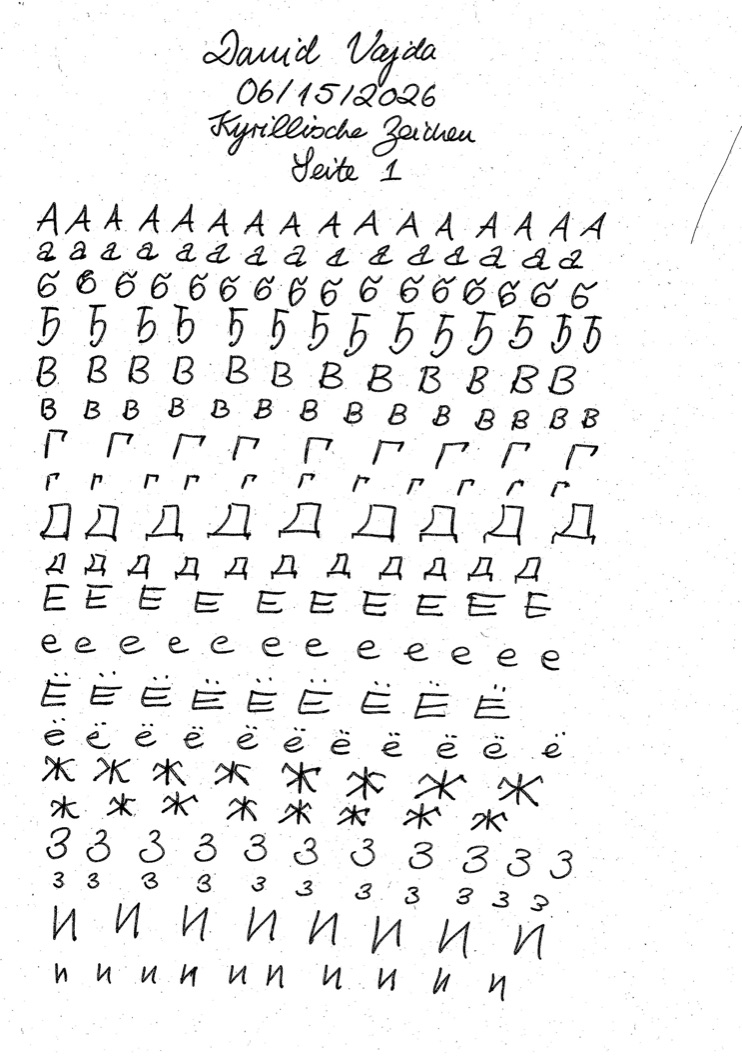 David Vajda
06/15/2026
Kyrillische Zeichen
Seite 1
А А А А А А А А А А А А А А А А
а а а а а а а а а а а а а а а а
б б б б б б б б б б б б б б б б
Б Б Б Б Б Б Б Б Б Б Б Б Б Б Б
В В В В В В В В В В В В
в в в в в в в в в в в в в в
Г Г Г Г Г Г Г Г Г
г г г г г г г г г г г
Д Д Д Д Д Д Д Д Д
д д д д д д д д д д д
Е Е Е Е Е Е Е Е Е Е
е е е е е е е е е е е е
Ё Ё Ё Ё Ё Ё Ё Ё Ё
ё ё ё ё ё ё ё ё ё ё ё
Ж Ж Ж Ж Ж Ж Ж Ж
ж ж ж ж ж ж ж ж
З З З З З З З З З З З
з з з з з з з з з з з
И И И И И И И И
и и и и и и и и и и